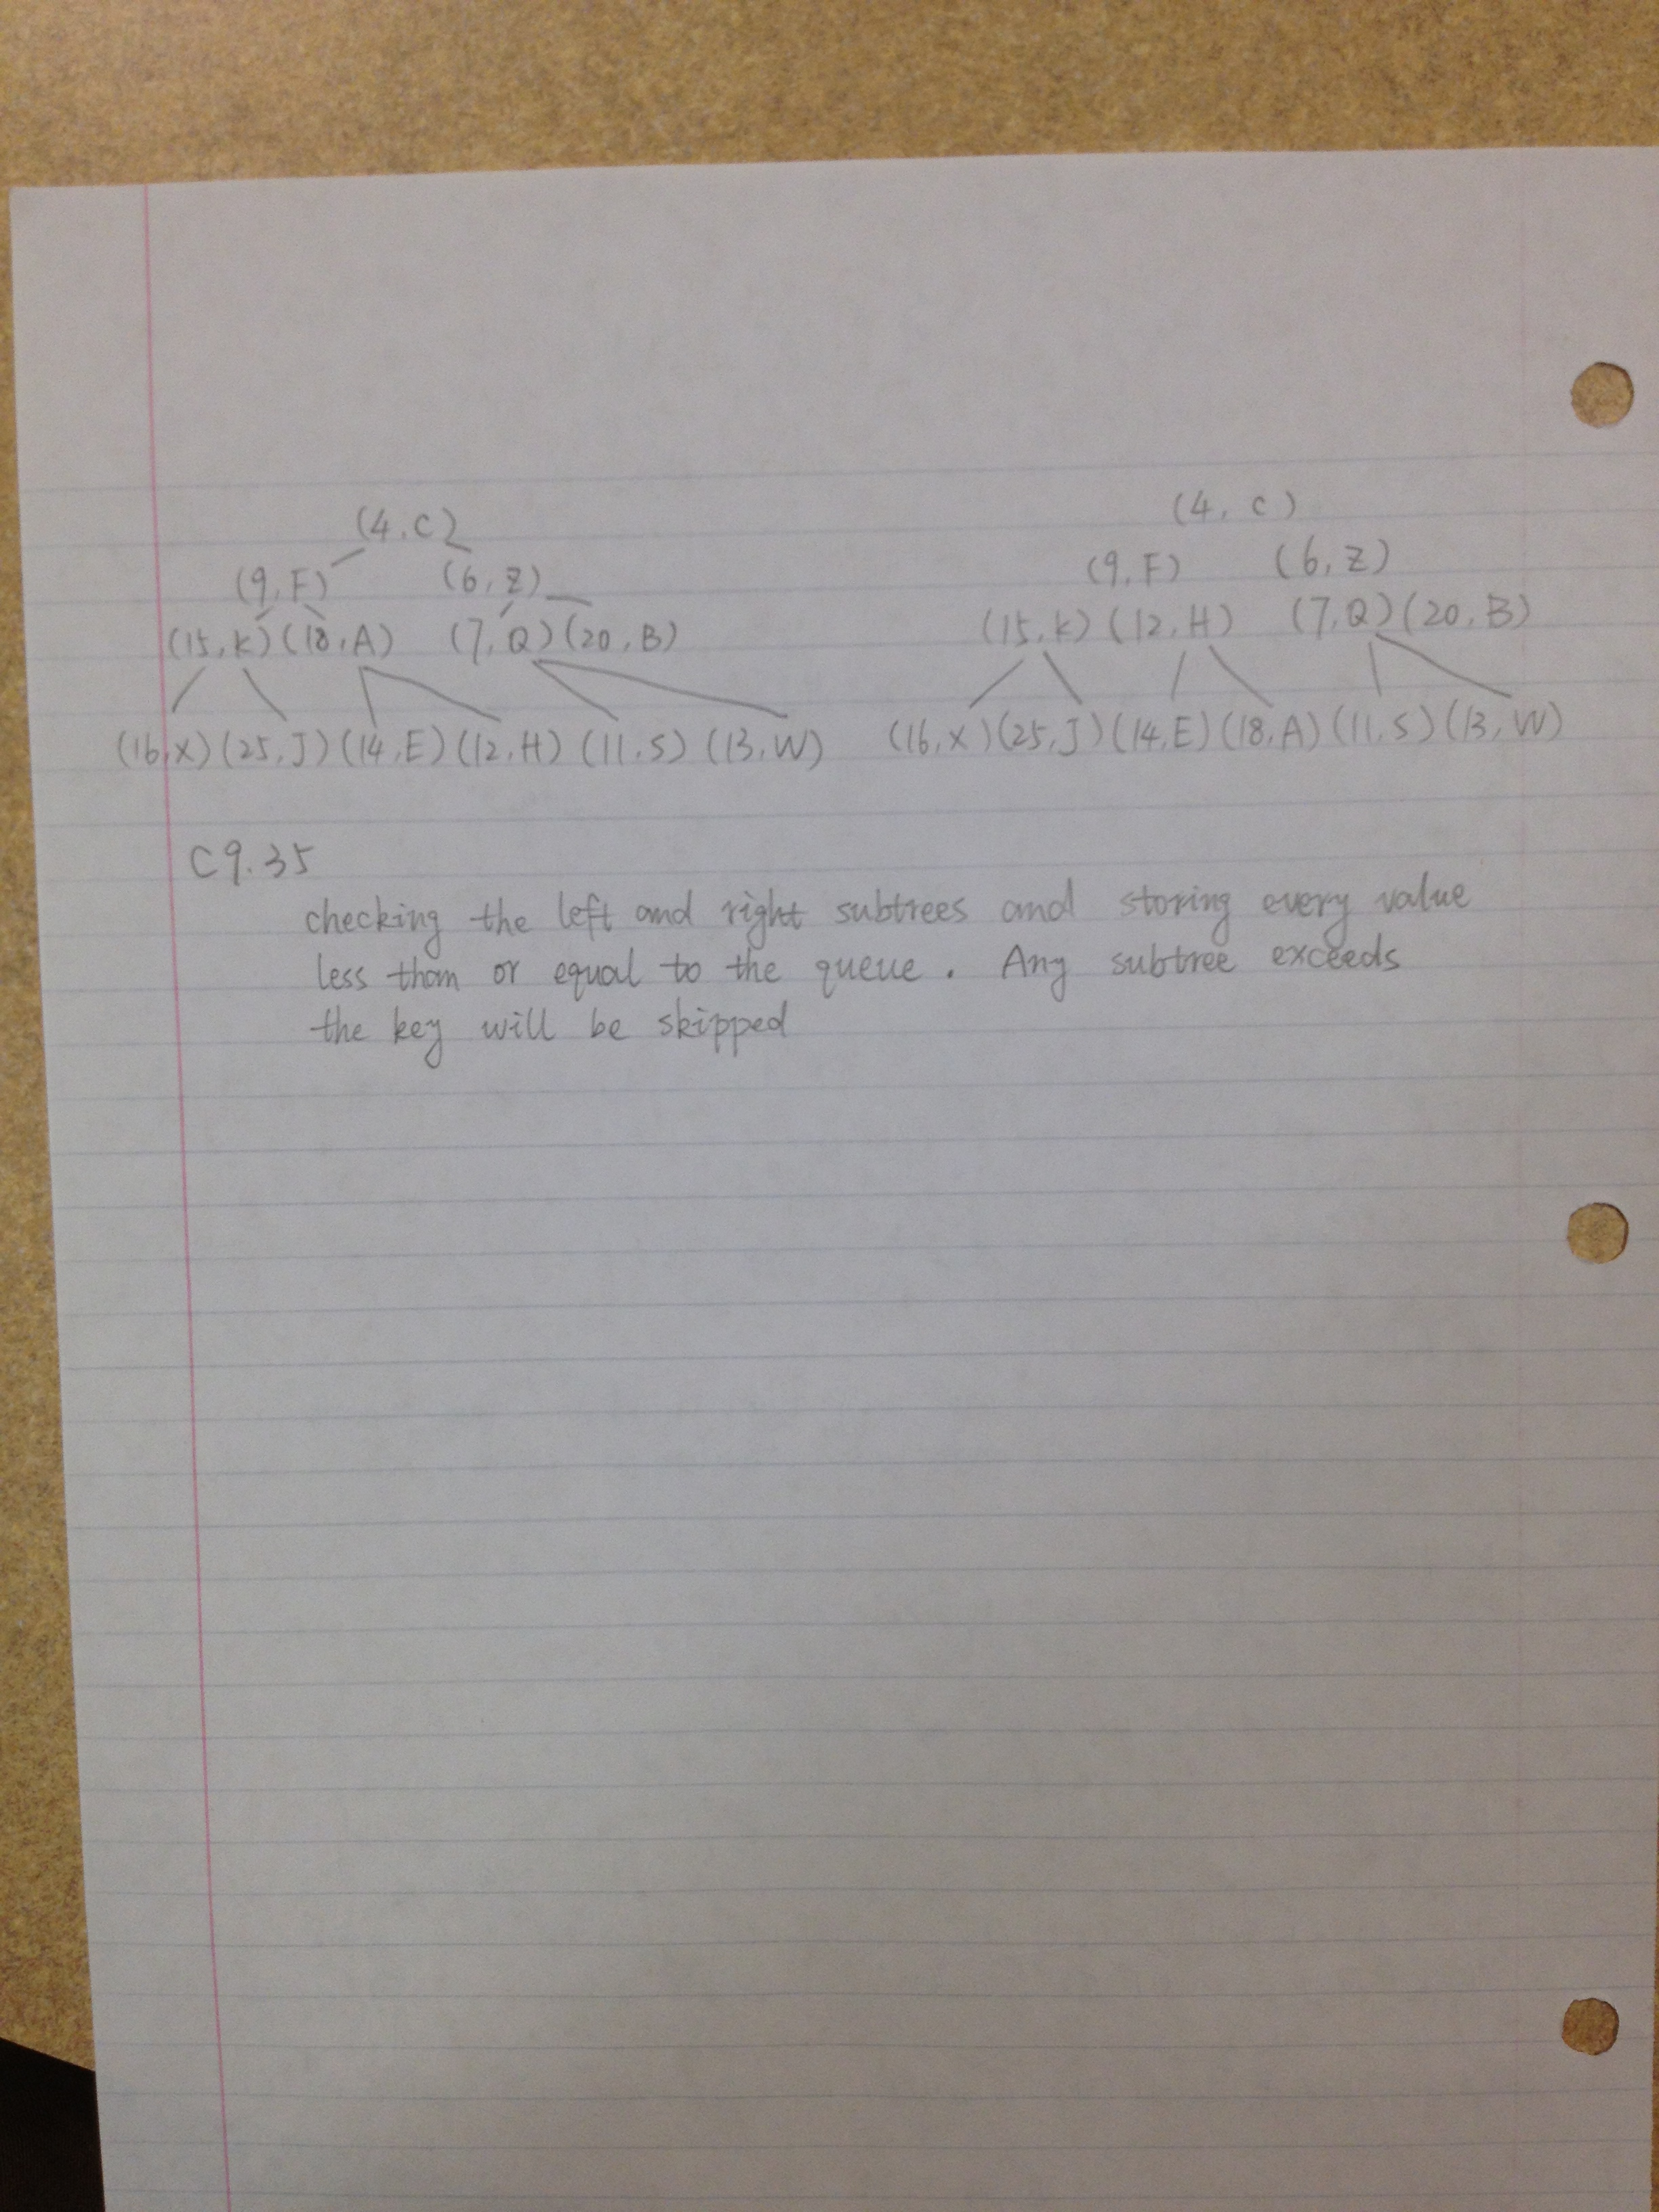 (4, C)
(9, F) (6, Z)
(15, K) (18, A) (7, Q) (20, B)
(16, X) (25, J) (14, E) (12, H) (11, S) (13, W)
(4, C)
(9, F) (6, Z)
(15, K) (12, H) (7, Q) (20, B)
(16, X) (25, J) (14, E) (18, A) (11, S) (13, W)
C9.35
checking the left and right subtrees and storing every value
less than or equal to the queue. Any subtree exceeds
the key will be skipped